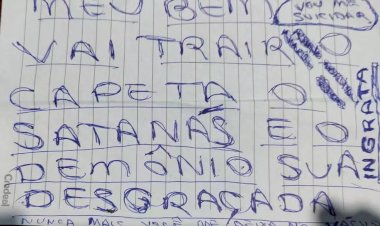 MEU BEM
VOU ME SUICIDAR
VAI TRAIR O
CAPETA O
SATANÁS E O
DEMÔNIO SUA
DESGRAÇADA
INGRATA
NUNCA MAIS VOCÊ ME